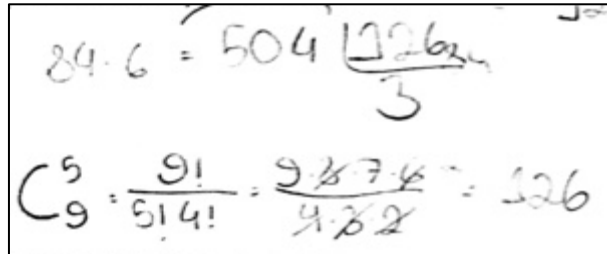 84 · 6 = 504 126
3
C⁵₉ = 9! / 5! 4! = 9 · 8 · 7 · 6 / 4 · 3 · 2 = 126